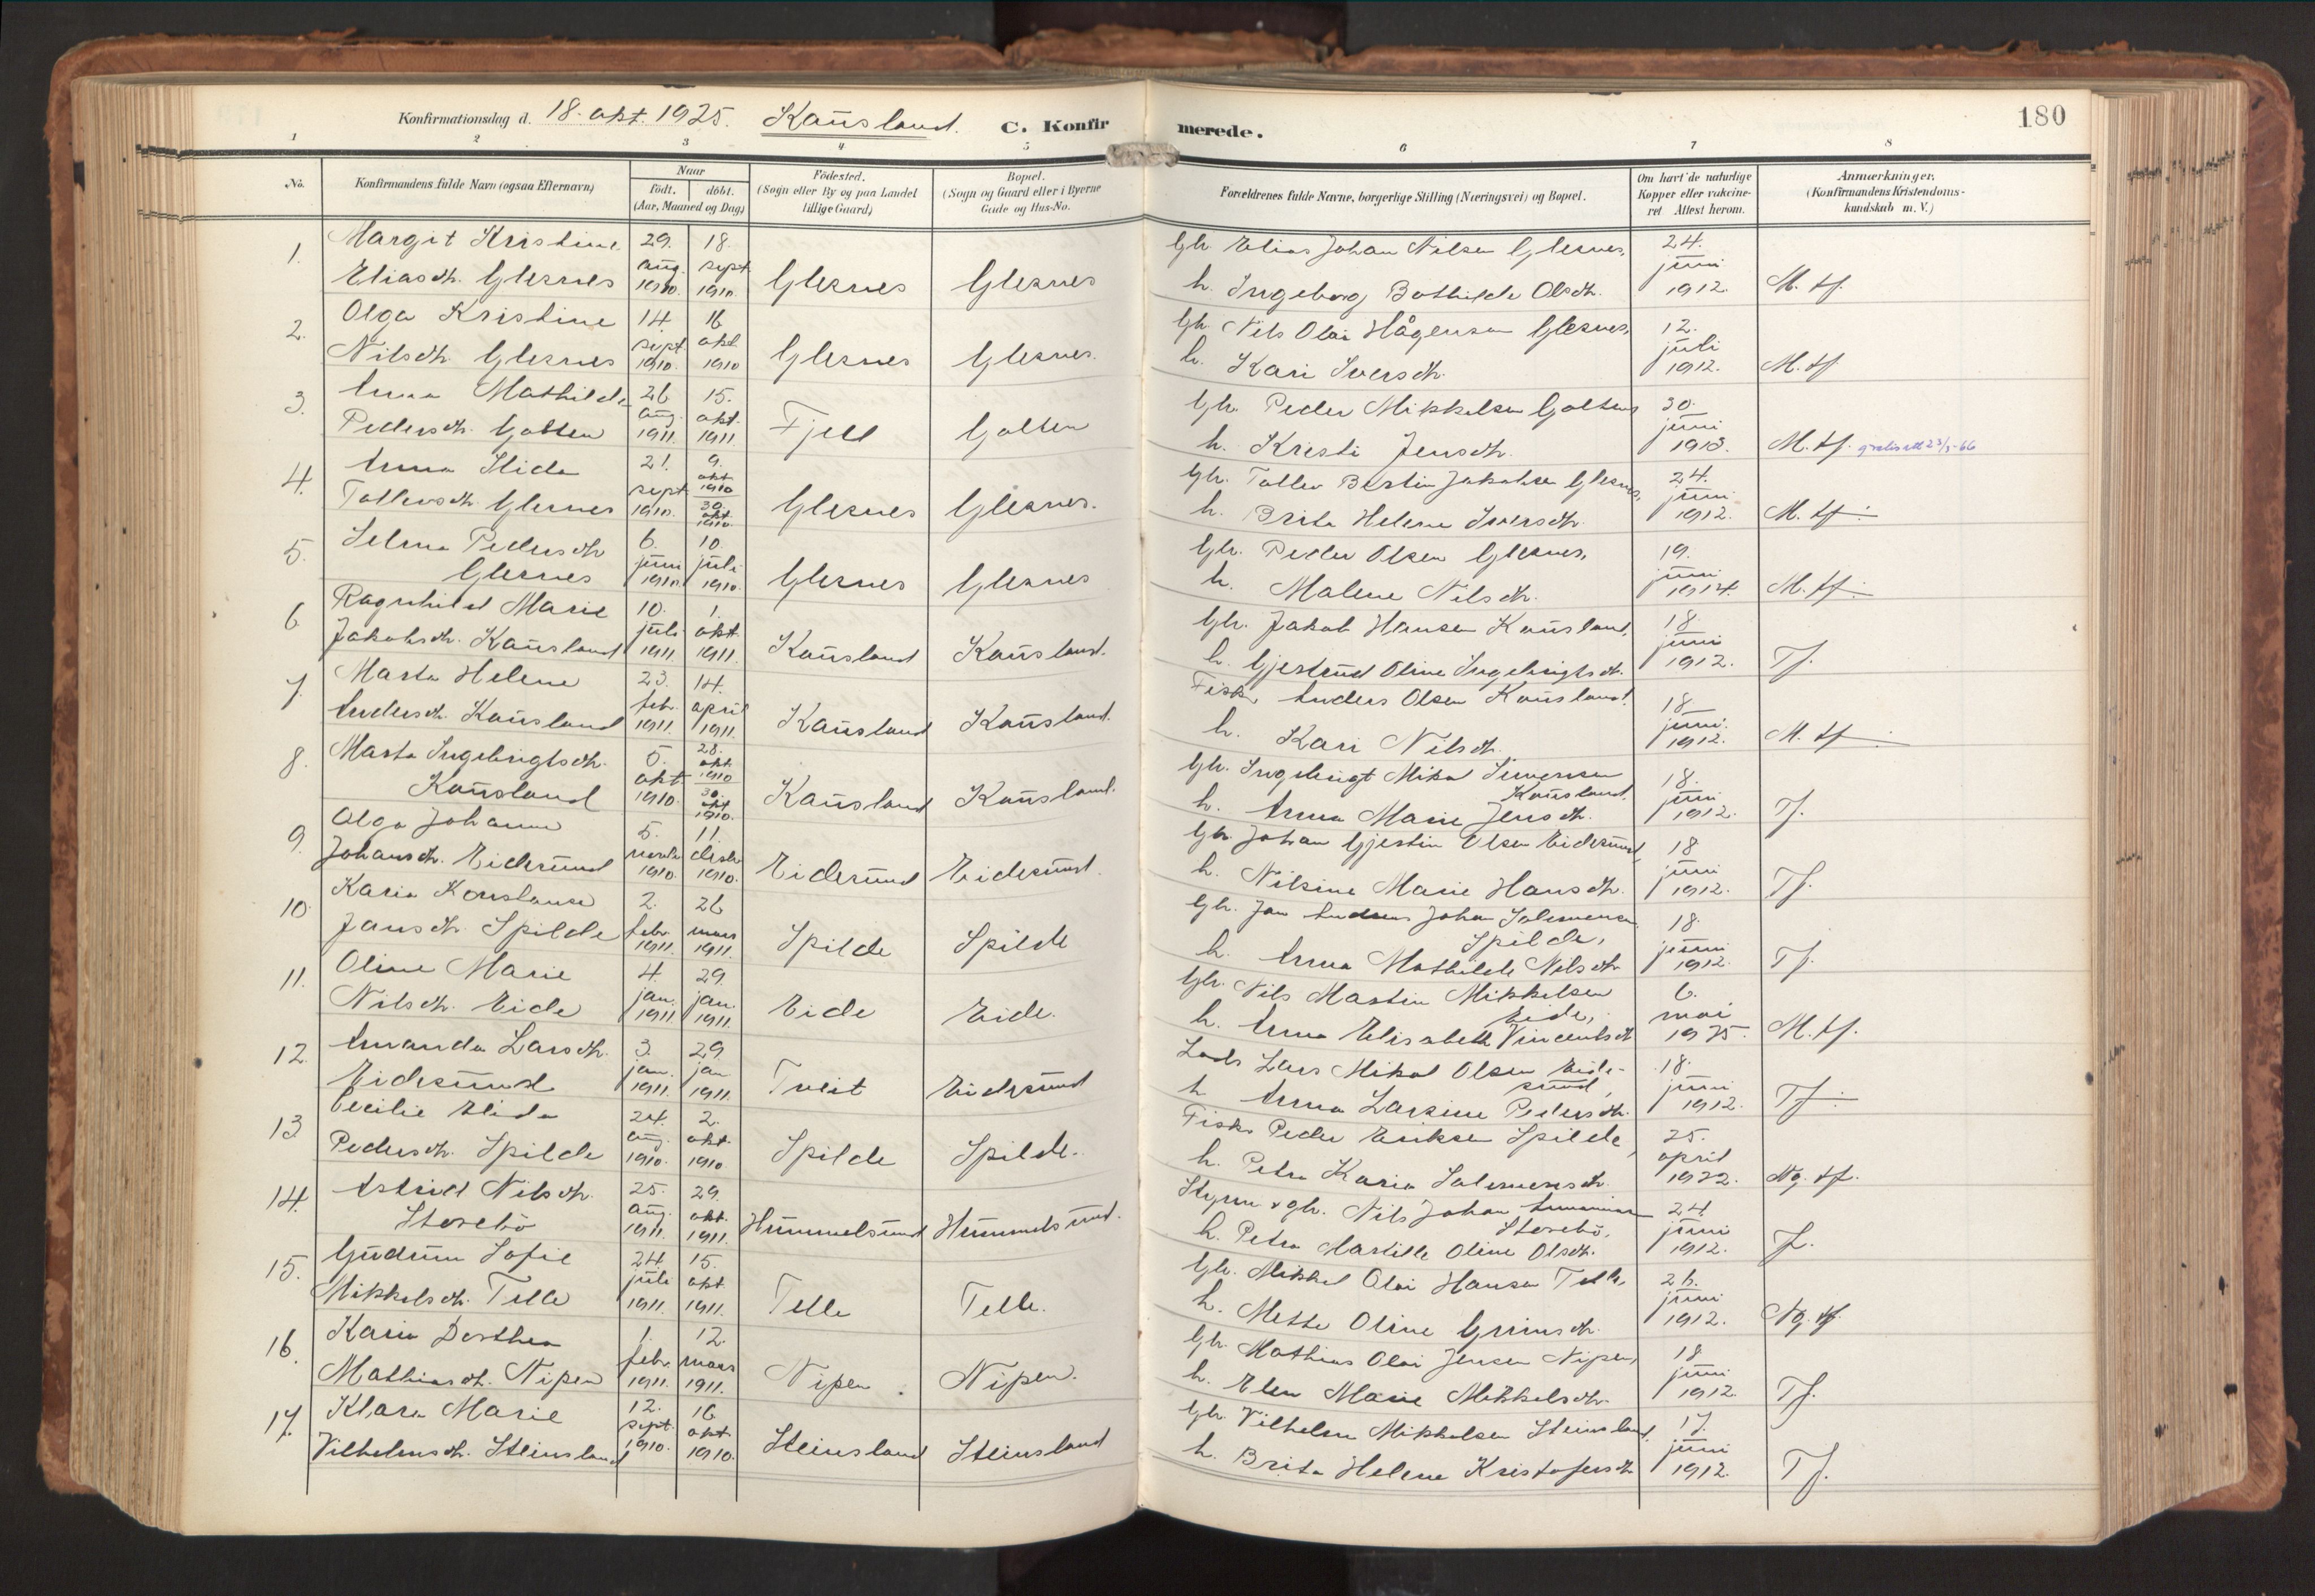 Konfirmationsdag d. 18. okt. 1925. Kausland. C. Konfirmerede. 180
1 2 3 4 5 6 7 8
No.
Konfirmandens fulde Navn (ogsaa Efternavn)
Naar
født. døbt.
(Aar, Maaned og Dag)
Födested.
(Sogn eller By og paa Landet
tillige Gaard)
Bopæl.
(Sogn og Gaard eller i Byerne
Gade og Hus-No.
Forældrenes fulde Navne, borgerlige Stilling (Næringsvei) og Bopæl.
Om havt de naturlige
Kopper eller vakcine-
ret Attest herom.
Anmærkninger.
(Konfirmandens Kristendoms-
kundskab m. V.)
1. Margit Kristine 29. 18. Gbr. Elias Johan Nilsen Glesnes, 24.
Eliasdtr. Glesnes aug. 1910. sept. 1910. Glesnes Glesnes h. Ingeborg Bothilde Olsdtr. juni 1912. M. tf.
2. Olga Kristine 14. 16 Gbr. Nils Olai Hågensen Glesnes, 12.
Nilsdtr. Glesnes sept 1910. okt. 1910 Glesnes Glesnes. h. Kari Iversdtr. juli 1912. M. tf
3. Anna Mathilde 26 15. Gbr. Peder Mikkelsen Golten, 30.
Pedersdtr. Golten aug. 1911. okt. 1911. Fjell Golten h. Kristi Jensdtr. juni 1913. M. tf.
4. Anna Alida 21. 9. okt 1910 Gbr. Tollev Bertin Jakobsen Glesnes, 24.
Tollevsdtr. Glesnes sept 1910. 30. okt 1910. Glesnes Glesnes. h. Brita Helene Iversdtr. juni 1912. M. tf.
5. Selma Pedersdtr 6. 10. Gbr. Peder Olsen Glesnes, 19.
Glesnes juni 1910. juli 1910. Glesnes Glesnes h. Malene Nilsdtr. juni 1914. M. tf.
6 Ragnhild Marie 10. 1. Gbr. Jakob Hansen Kausland, 18.
Jakobsdtr. Kausland juli 1911. okt. 1911. Kausland Kausland. h. Gjertrud Oline Ingebrigtsdtr. juni 1912. Tf.
7. Marta Helene 23. 14. Fisk. Anders Olsen Kausland, 18
Andersdtr. Kausland febr. 1911. april 1911. Kausland Kausland. h. Kari Nilsdtr. juni 1912. M. tf
8. Marta Ingebrigtsdtr. 5. 28. okt 1910 Gbr. Ingebrigt Mikal Simensen 18.
Kausland okt 1910. 30. okt 1910. Kausland Kausland. Kausland, h. Anna Marie Jensdtr. juni 1912. Tf.
9. Olga Johanne 5. 11. Gbr. Johan Gjestin Olsen Eidesund, 18
Johansdtr. Eidesund novbr 1910. desbr 1910. Eidesund Eidesund. h. Nilsine Marie Hansdtr. juni 1912. Tf.
10. Karia Konstanse 2. 26 Gbr. Jan Andreas Johan Salemonsen 18.
Jansdtr. Spilde febr. 1911. mars 1911. Spilde Spilde Spilde, h. Anna Mathilde Nilsdtr juni 1912. Tf.
11. Oline Marie 4. 29. Gbr. Nils Martin Mikkelsen 6.
Nilsdtr. Eide jan. 1911 jan. 1911. Eide Eide. Eide, h. Anna Elisabeth Vincentsdtr mai 1925. M. tf.
12. Amanda Larsdtr. 3. 29. Lods Lars Mikal Olsen Eide- 18.
Eidesund jan. 1911. jan 1911. Tveit Eidesund sund, h Anna Larsine Pedersdtr. juni 1912. Tf.
13 Cecilie Elida 24. 2. Fisk. Peder Eriksen Spilde, 25.
Pedersdtr. Spilde aug. 1910. okt. 1910. Spilde Spilde. h. Petra Karia Salemonsdtr. april 1922. Ng. tf.
14. Astrid Nilsdtr. 25. 29. Styrm. v gbr. Nils Johan 24.
Storebö aug. 1911. okt. 1911. Hummelsund Hummelsund. Storebö, h. Petra Martille Oline Olsdtr. juni 1912. T.
15. Gudrun Sofie 24 15. Gbr. Mikkel Olai Hansen Telle, 26.
Mikkelsdtr. Telle juli 1911. okt 1911. Telle Telle. h. Mette Oline Grimsdtr. juni 1912. Ng. tf.
16. Karia Dorthea 1. 12. Gbr. Mathias Olai Jensen Nipen, 18
Mathiasdtr. Nipen febr. 1911. mars 1911. Nipen. Nipen. h. Elen Marie Mikkelsdtr. juni 1912. Tf.
17. Klara Marie 12. 16 Gbr. Vilhelm Mikkelsen Steinsland, 17.
Vilhelmsdtr. Steinsland sept. 1910. okt 1910. Steinsland Steinsland h. Brita Helene Kristofersdtr juni 1912. Tf.